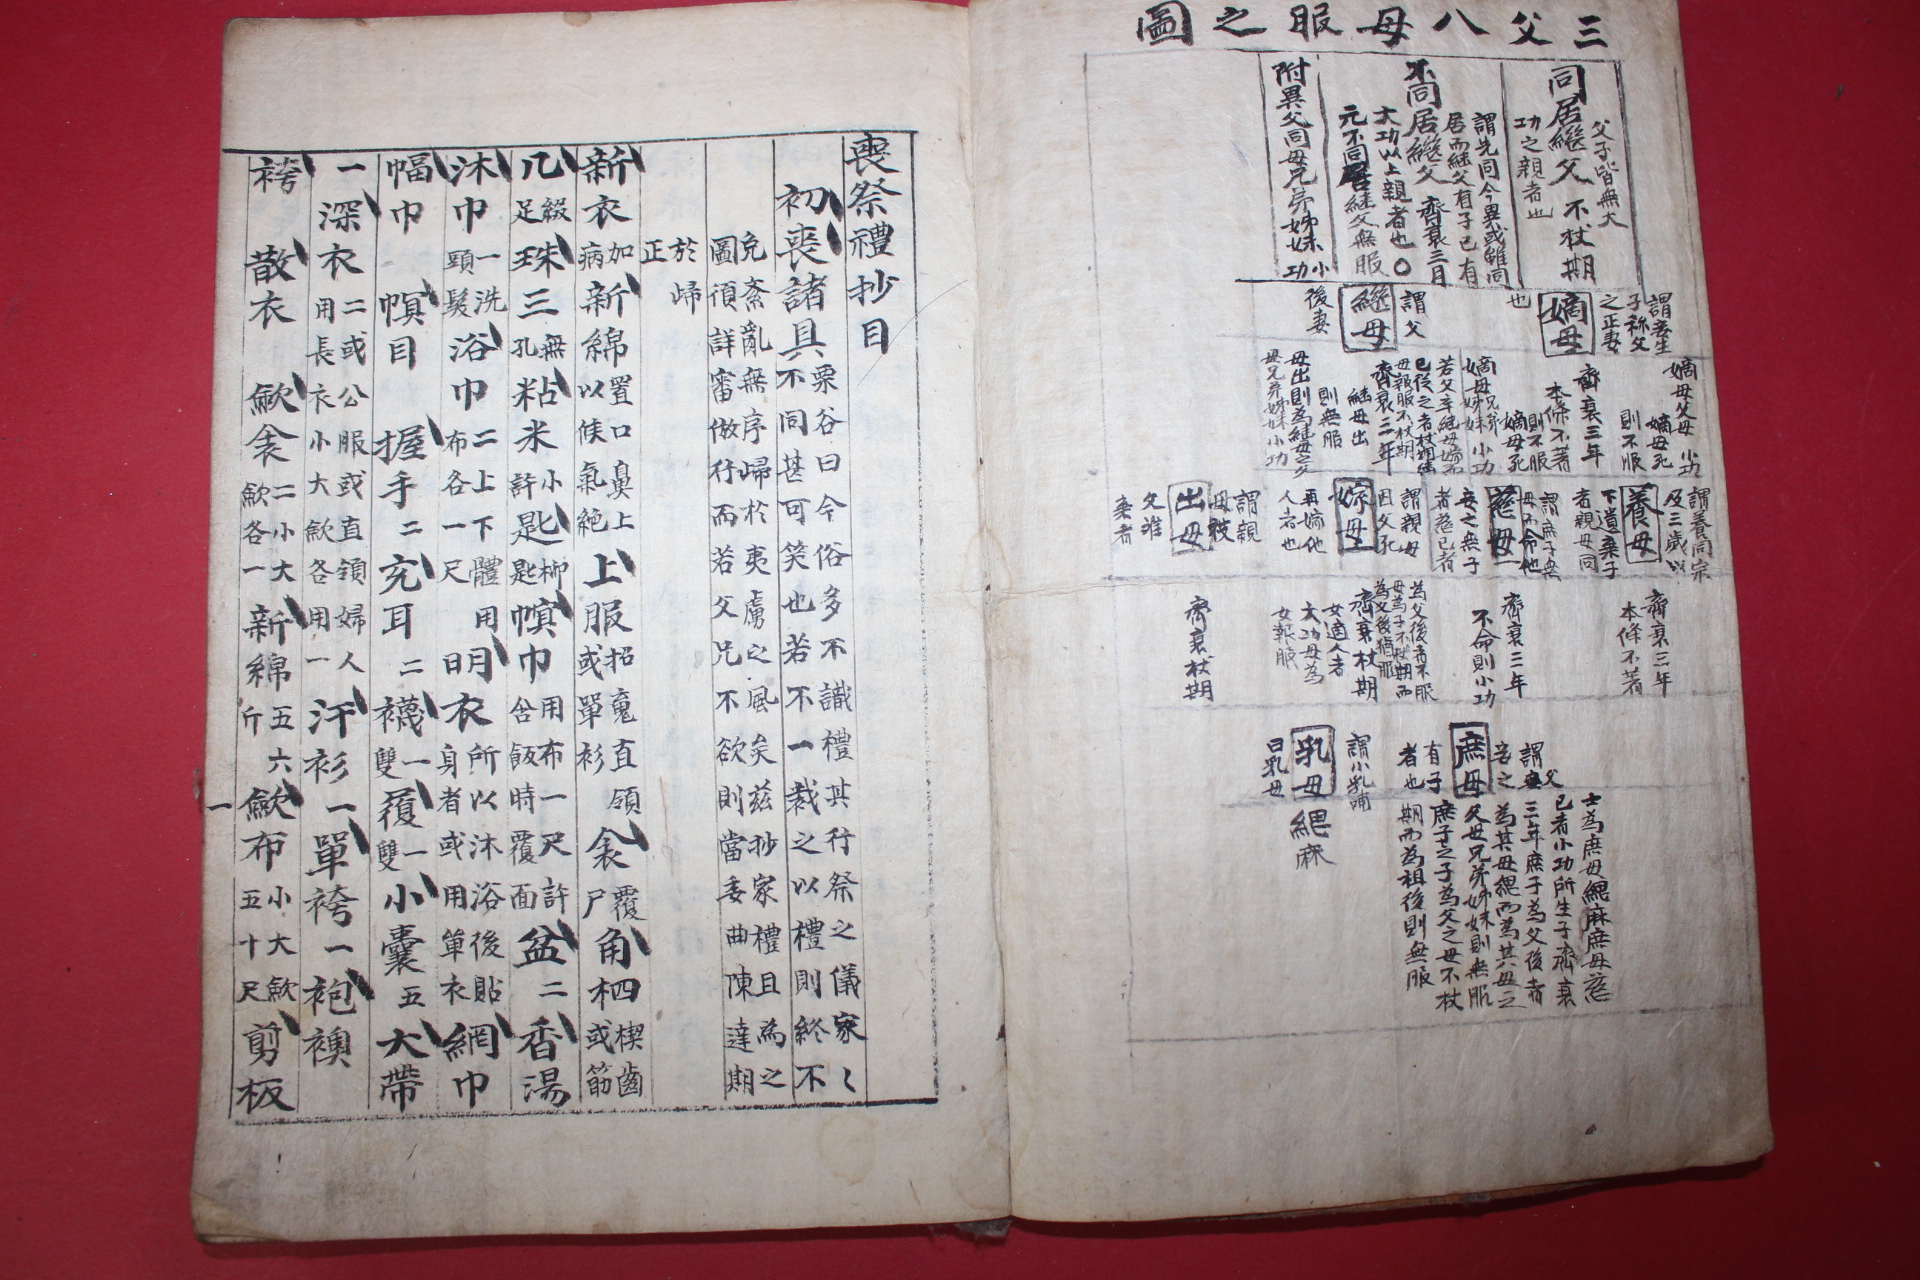 三父八母服之圖
父子皆無大
同居繼父不杖期
功之親者也
謂先同今異或雖同
居而繼父有子已有
不同居繼父齊衰三月
大功以上親者也○
元不同居繼父無服
附異父同母兄弟姊妹小功
謂妾生
子称父
之正妻
嫡母
也
謂父
繼母
後妻
嫡母父母小功
嫡母死
則不服
齊衰三年
本條不著
嫡母死
則不服
嫡母兄弟
姊妹小功
若父卒繼母嫁而
已從之者杖期繼
母報服不杖期
齊衰三年
繼母出
則無服
母出則為繼母之父
母兄弟姊妹小功
謂養同宗
及三歲以
養母
下遺棄子
者親母同
謂庶子無
母而命他
慈母
妾之無子
者慈己者
謂親母
因父死
嫁母
再嫁他
人者也
謂親
母被
出母
父離
棄者
齊衰三年
本條不著
齊衰三年
不命則小功
為父後者不服
母為子不杖期而
為父後猶服
齊衰杖期
女適人者
大功母為
女報服
齊衰杖期
謂父
妾之
庶母
有子
者也
謂小乳哺
乳母
曰乳母
緦麻
士為庶母緦麻庶母慈
已者小功所生子齊衰
三年庶子為父後者
為其母緦而為其母之
父母兄弟姊妹則無服
庶子之子為父之母不杖
期而為祖後則無服
喪祭禮抄目
初喪諸具栗谷曰今俗多不識禮其行祭之儀家〻
不同甚可笑也若不一裁之以禮則終不
免紊亂無序歸於夷虜之風矣茲抄家禮且為之
圖須詳審倣行而若父兄不欲則當委曲陳達期
於歸
正
新衣加病新綿置口鼻上以候氣絶上服招䰟直領或單衫衾覆尸角柶四楔齒或筯
几綴足珠三無孔粘米小許匙柳匙幎巾用布一尺許含飯時覆面盆二香湯
沐巾一洗頭髮浴巾二上下體布各一尺用日明衣所以沐浴後貼身者或用單衣網巾
幅巾幎目握手二充耳二襪一雙履一雙小囊五大帶
一深衣二或公服或直領婦人用長衣小大歛各用一汗衫一單袴一袍襖
袴散衣歛衾二小大歛各一新綿五六斤歛布小大歛五十尺剪板
一